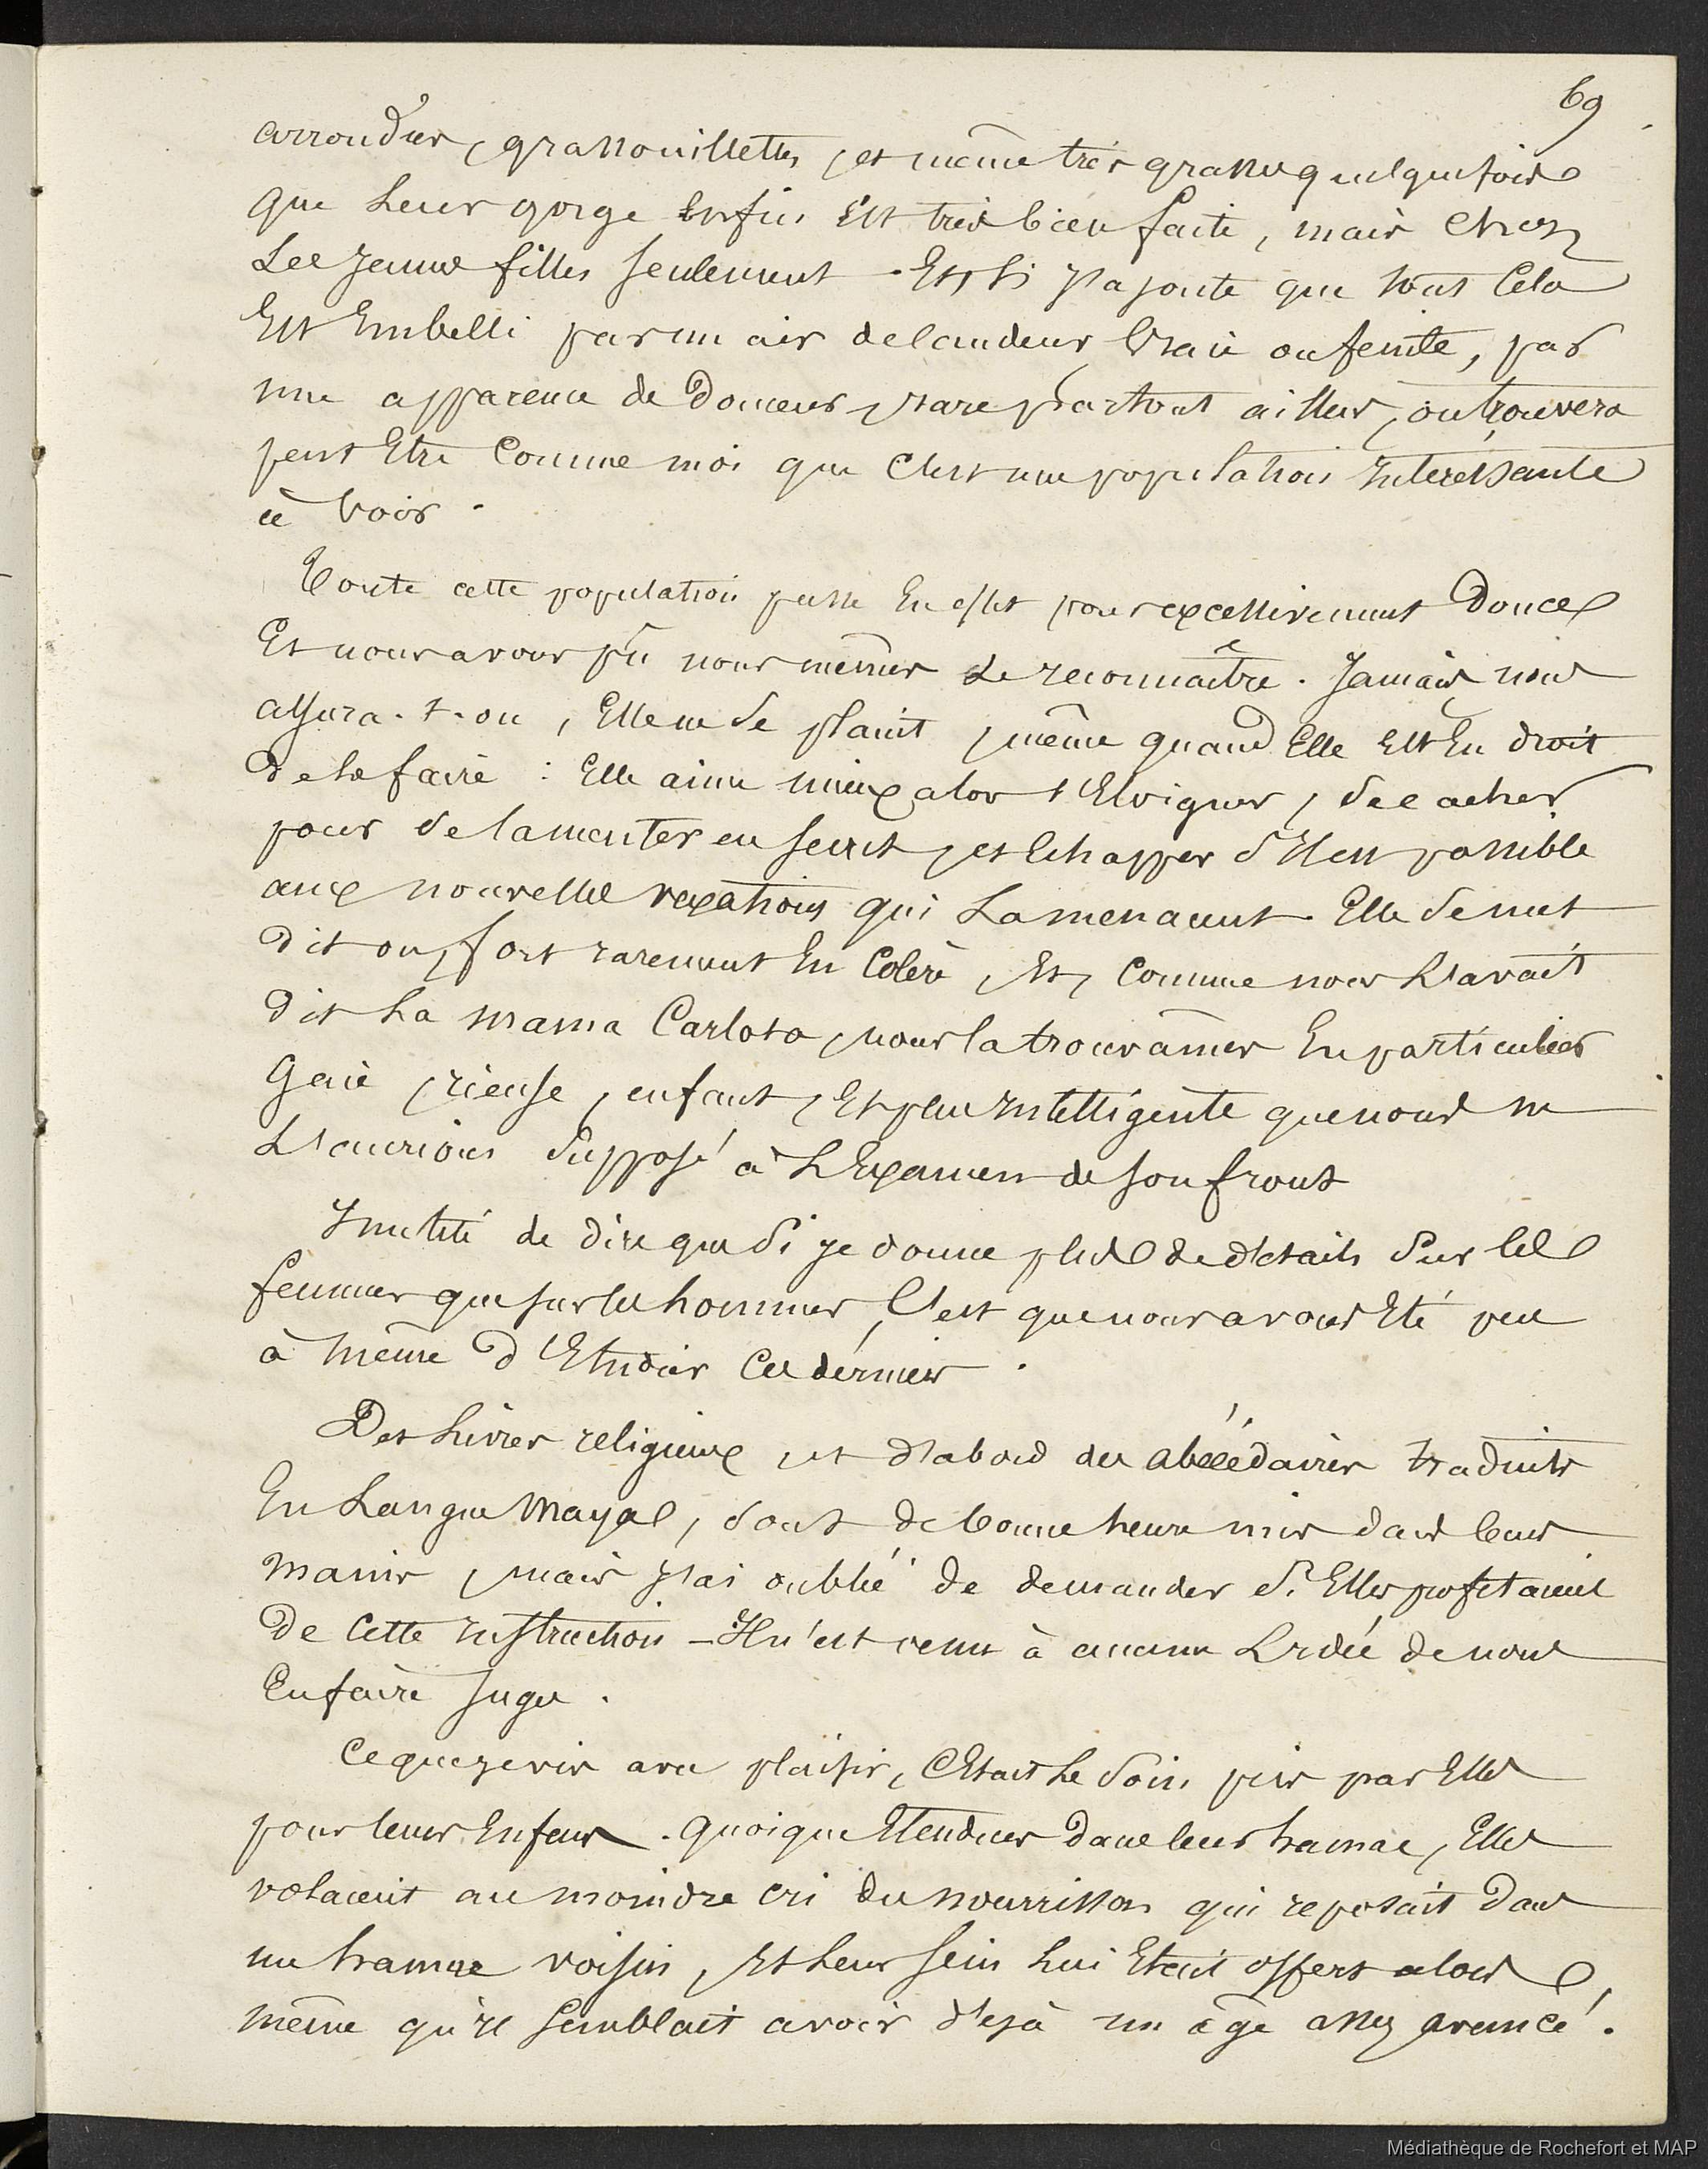 69
arrondies, grassouillettes, et même très grasses quelquefois
que leur gorge enfin est très bien faite, mais chez
les jeunes filles seulement. Et, si j'ajoute que tout cela
est embelli par un air de candeur vraie ou feinte, par
une apparence de douceur, rare partout ailleurs, on trouvera
peut être comme moi que c'est une population intéressante
à voir.
Toute cette population passe en effet pour excessivement douce
Et nous avons pû nous mêmes le reconnaître. Jamais nous
assura-t-on, Elle ne se plaint, même quand Elle est en droit
de le faire : Elle aime mieux alors s'Eloigner, se cacher
pour se lamenter en secret, et échapper s'il est possible
aux nouvelles vexations qui la menacent. Elle se met
dit on, fort rarement en colère, et, comme nous l'avait
dit la mama Carlota, nous la trouvâmes En particulier
gaie, rieuse, enfant, Et plus intelligente que nous ne
l'aurions supposé à l'Examen de son front
Inutile de dire que si je donne plus de détails sur les
femmes que sur les hommes, C'est que nous avons été peu
à même d'Etudier ces derniers.
Des livres religieux, et d'abord des abécédaires traduits
En langue Maya, sont de bonne heure mis dans leurs
mains, mais j'ai oublié de demander si Elles profitaient
de cette instruction - Il n'est venu à aucune l'idée de nous
En faire juges.
Ce que je vis avec plaisir, C'était le soin pris par Elles
pour leurs Enfans. Quoique Etendues dans leur hamac, Elles
volaient au moindre cri du nourrisson qui reposait dans
un hamac voisin, et leur sein lui était offert alors
même qu'il semblait avoir déjà un âge assez avancé.
Médiathèque de Rochefort et MAP